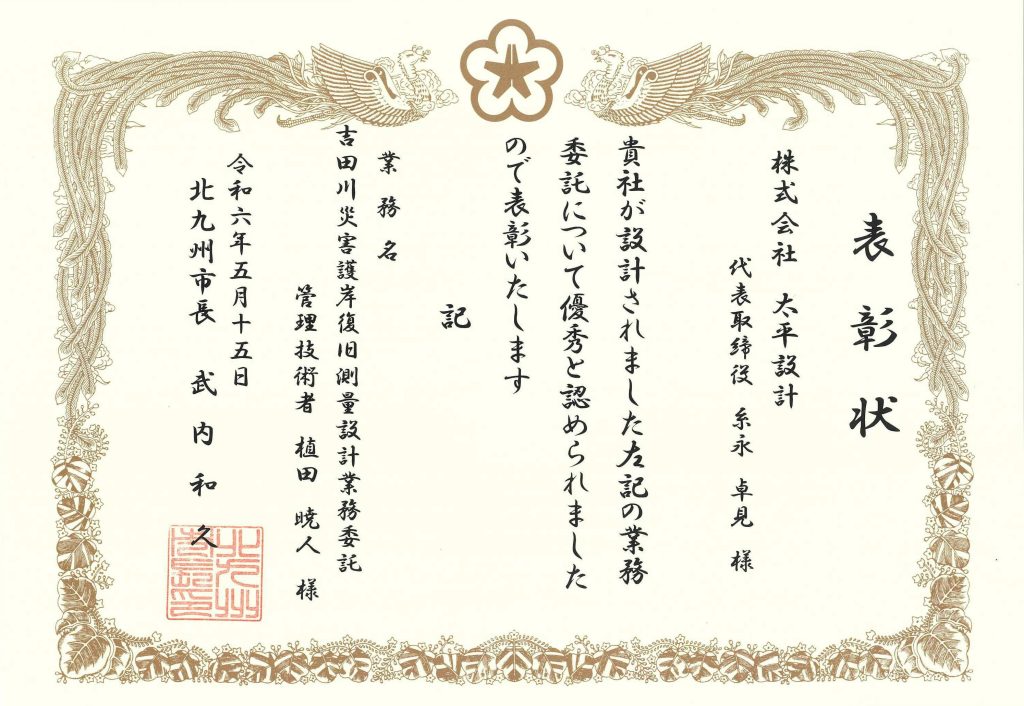 表彰状
株式会社 太平設計
代表取締役 糸永 卓見 様
貴社が設計されました左記の業務
委託について優秀と認められました
ので表彰いたします
記
業務名
吉田川災害護岸復旧測量設計業務委託
管理技術者 植田 暁人 様
令和六年五月十五日
北九州市長 武内和久
北九州市長之印